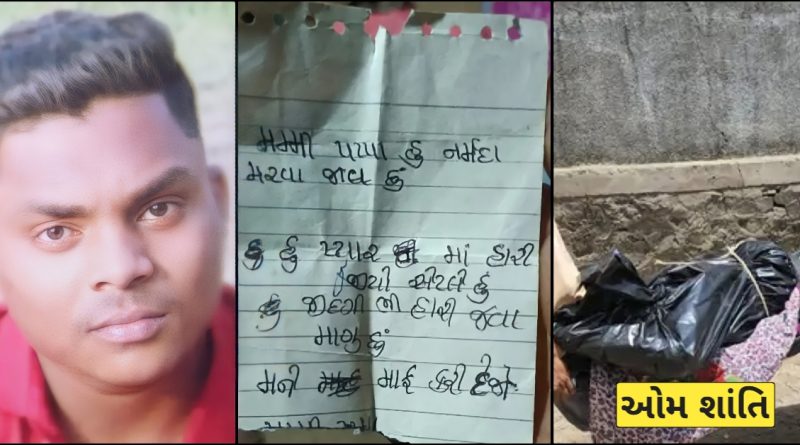 મમ્મી પપ્પા હું નર્મદા
મરવા જાવ છું
હું પ્યાર માં હારી
એટલે હું
જીદગી ભી હારી જવા
માગુ છું
મને માફ કરી દેજો
ઓમ શાંતિ